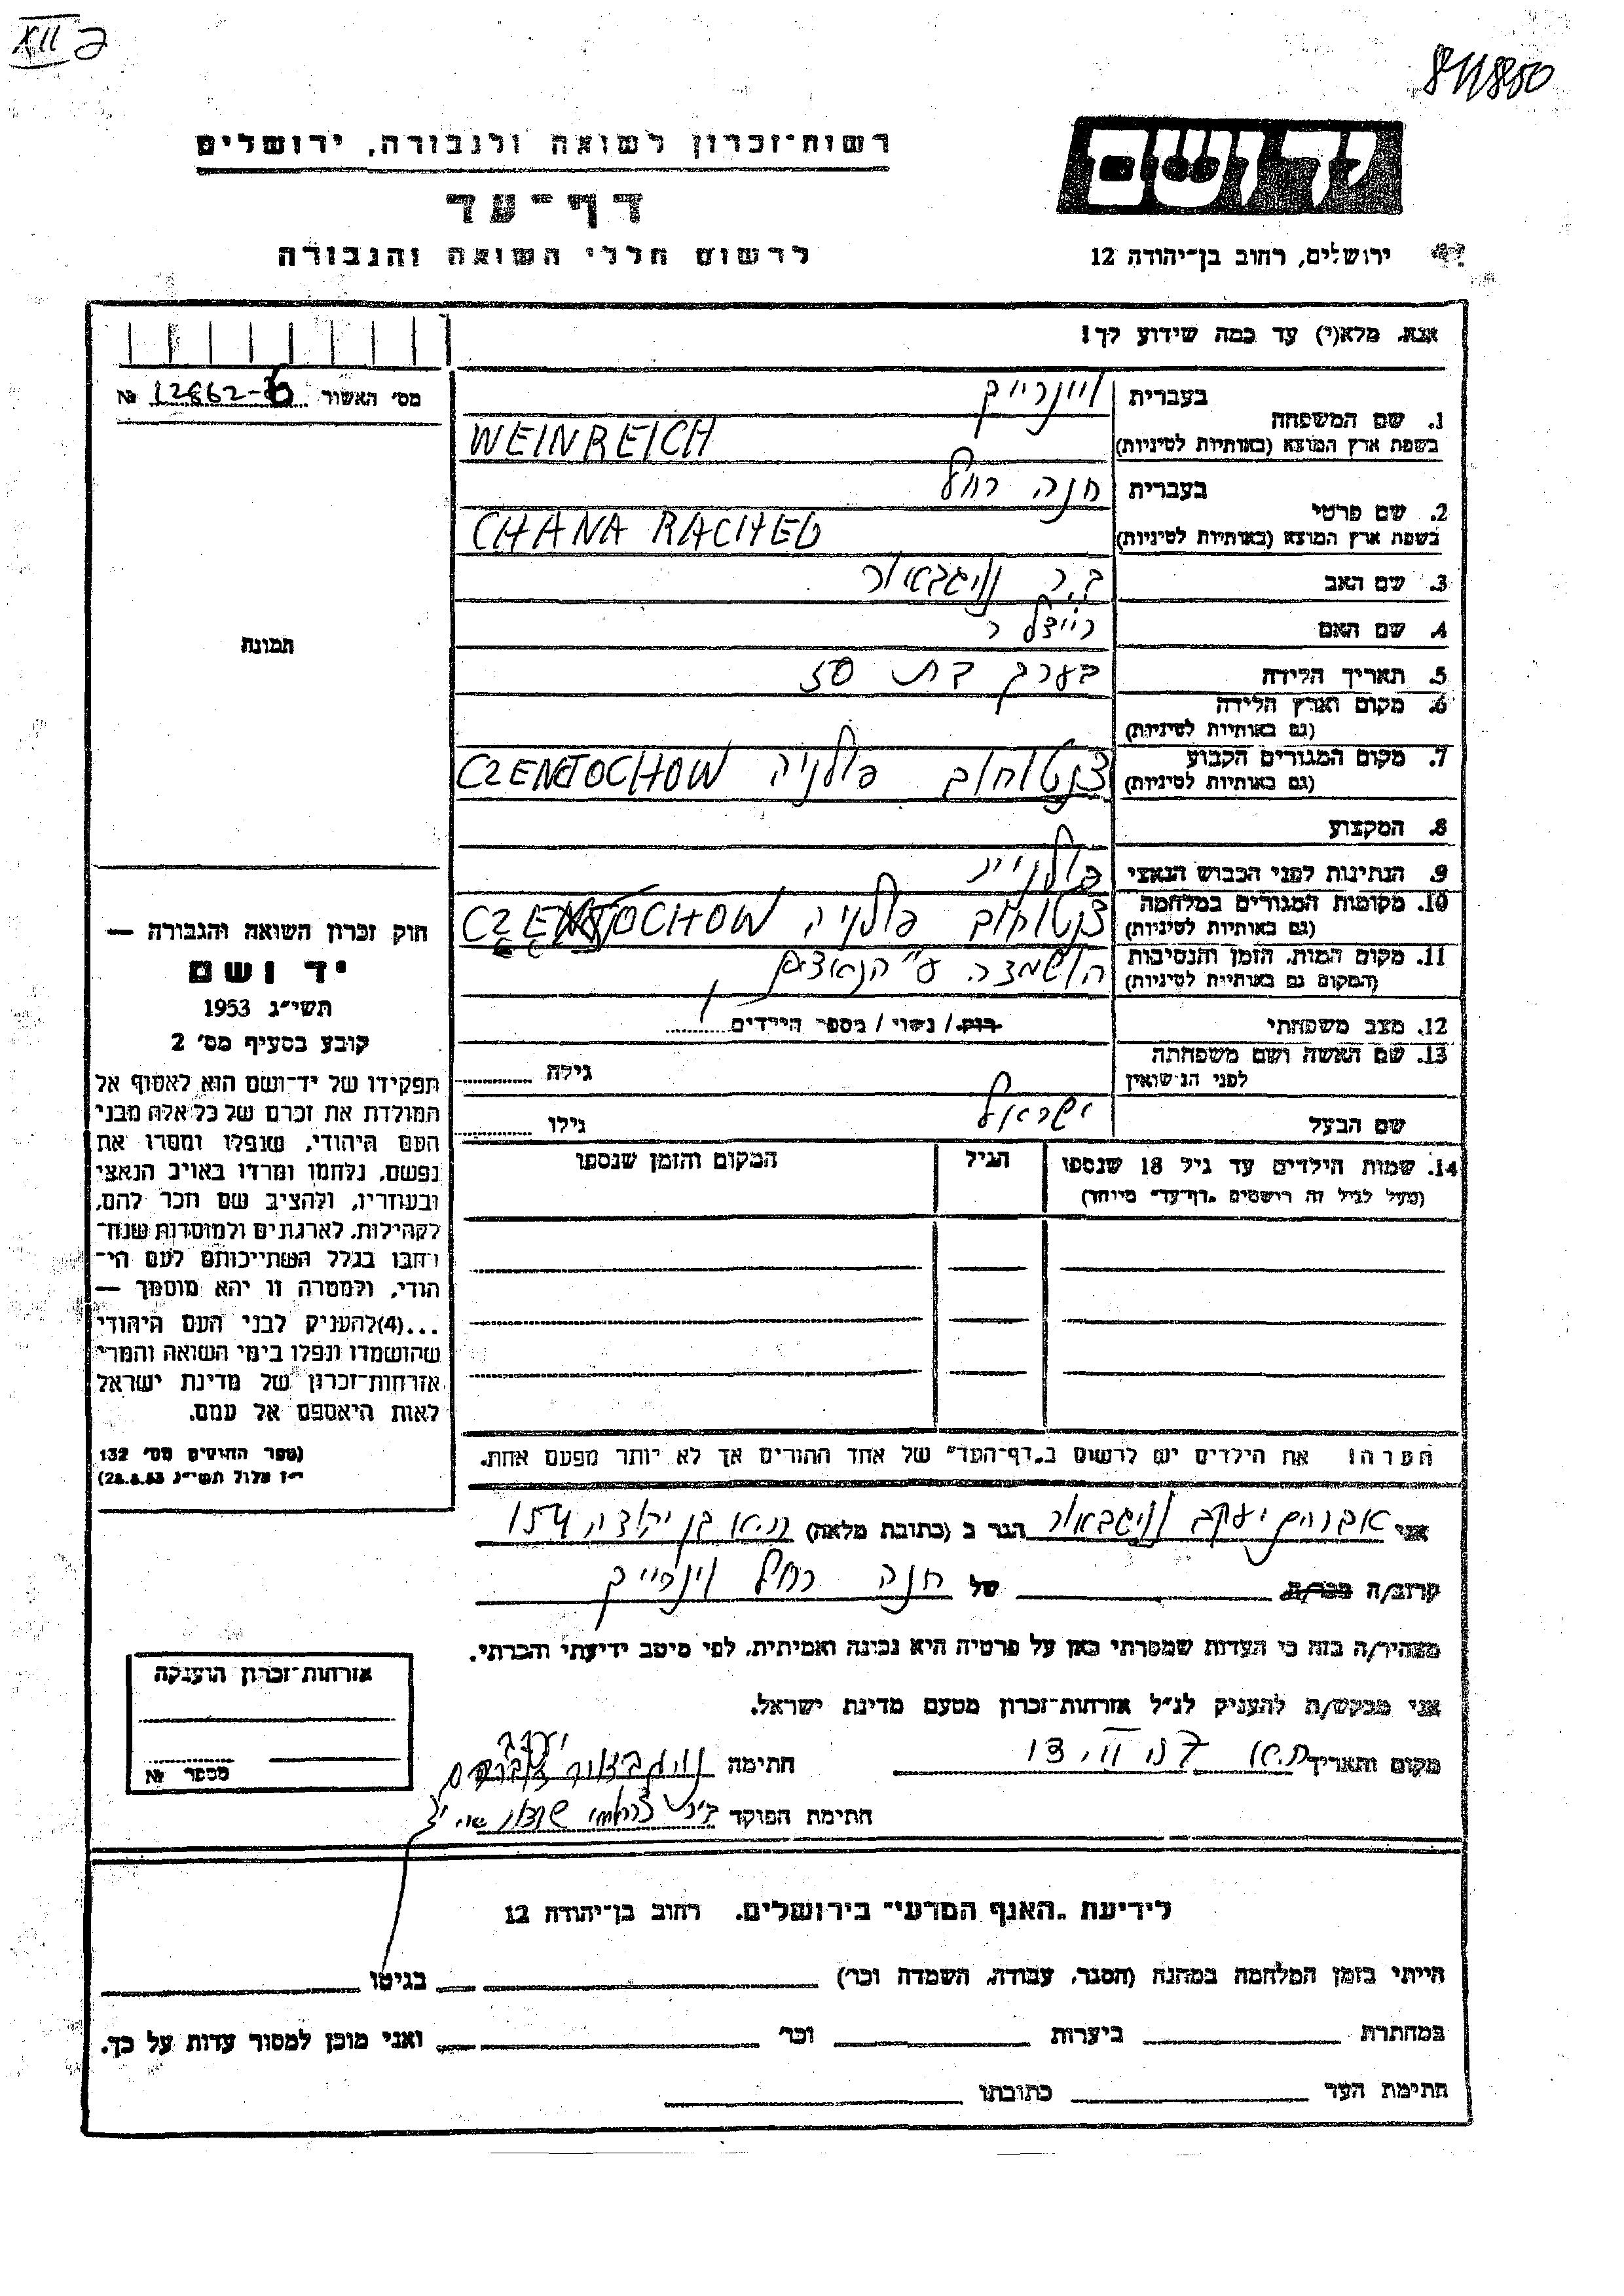 XII
811850
רשות־זכרון לשואה ולגבורה, ירושלים
יד ושם
דף־עד
לרשום חללי השואה והגבורה
ירושלים, רחוב בן־יהודה 12
אנא, מלא(י) עד כמה שידוע לך!
מס׳ האשור 12862-6 №
1. שם המשפחה
בעברית ויינרייך
בשפת ארץ המוצא (באותיות לטיניות) WEINREICH
2. שם פרטי
בעברית חנה רחל
בשפת ארץ המוצא (באותיות לטיניות) CHANA RACHEL
3. שם האב
4. שם האם רייצל
5. תאריך הלידה בערך בת 50
6. מקום וארץ הלידה
(גם באותיות לטיניות)
7. מקום המגורים הקבוע
(גם באותיות לטיניות) צנטוחוב פולניה CZENTOCHOW
8. המקצוע
9. הנתינות לפני הכבוש הנאצי פולנית
10. מקומות המגורים במלחמה
(גם באותיות לטיניות) צנטוחוב פולניה CZENTOCHOW
11. מקום המות, הזמן והנסיבות
(המקום גם באותיות לטיניות) הושמדה ע״י הנאצים
12. מצב משפחתי רוק / נשוי / מספר הילדים
13. שם האשה ושם משפחתה
לפני הנישואין גילה
שם הבעל ישראל גילו
14. שמות הילדים עד גיל 18 שנספו הגיל המקום והזמן שנספו
(מעל לגיל זה רושמים „דף־עד״ מיוחד)
תמונה
חוק זכרון השואה והגבורה —
יד ושם
תשי״ג 1953
קובע בסעיף מס׳ 2
תפקידו של יד־ושם הוא לאסוף אל
המולדת את זכרם של כל אלה מבני
העם היהודי, שנפלו ומסרו את
נפשם, נלחמו ומרדו באויב הנאצי
ובעוזריו, ולהציב שם וזכר להם,
לקהילות, לארגונים ולמוסדות שנח־
רבו בגלל השתייכותם לעם הי־
הודי, ולמטרה זו יהא מוסמך —
...(4)להעניק לבני העם היהודי
שהושמדו ונפלו בימי השואה והמרי
אזרחות־זכרון של מדינת ישראל
לאות היאספם אל עמם.
(ספר החוקים מס׳ 132
י״ז אלול תשי״ג 28.8.53)
הערה: את הילדים יש לרשום ב„דף־העד״ של אחד ההורים אך לא יותר מפעם אחת.
אני אברהם יעקב הגר ב (כתובת מלאה) ת״א בן יהודה 154
קרוב/ה מכר/ה של חנה רחל וינרייך
מצהיר/ה בזה כי העדות שמסרתי כאן על פרטיה היא נכונה ואמיתית, לפי מיטב ידיעתי והכרתי.
אני מבקש/ת להעניק לנ״ל אזרחות־זכרון מטעם מדינת ישראל.
מקום ותאריך ת״א חתימה
חתימת הפוקד
אזרחות־זכרון הוענקה
מספר №
לידיעת „האגף המדעי״ בירושלים, רחוב בן־יהודה 12
הייתי בזמן המלחמה במחנה (הסגר, עבודה, השמדה וכר׳) בגיטו
במחתרת ביערות וכר׳ ואני מוכן למסור עדות על כך.
חתימת העד כתובתו